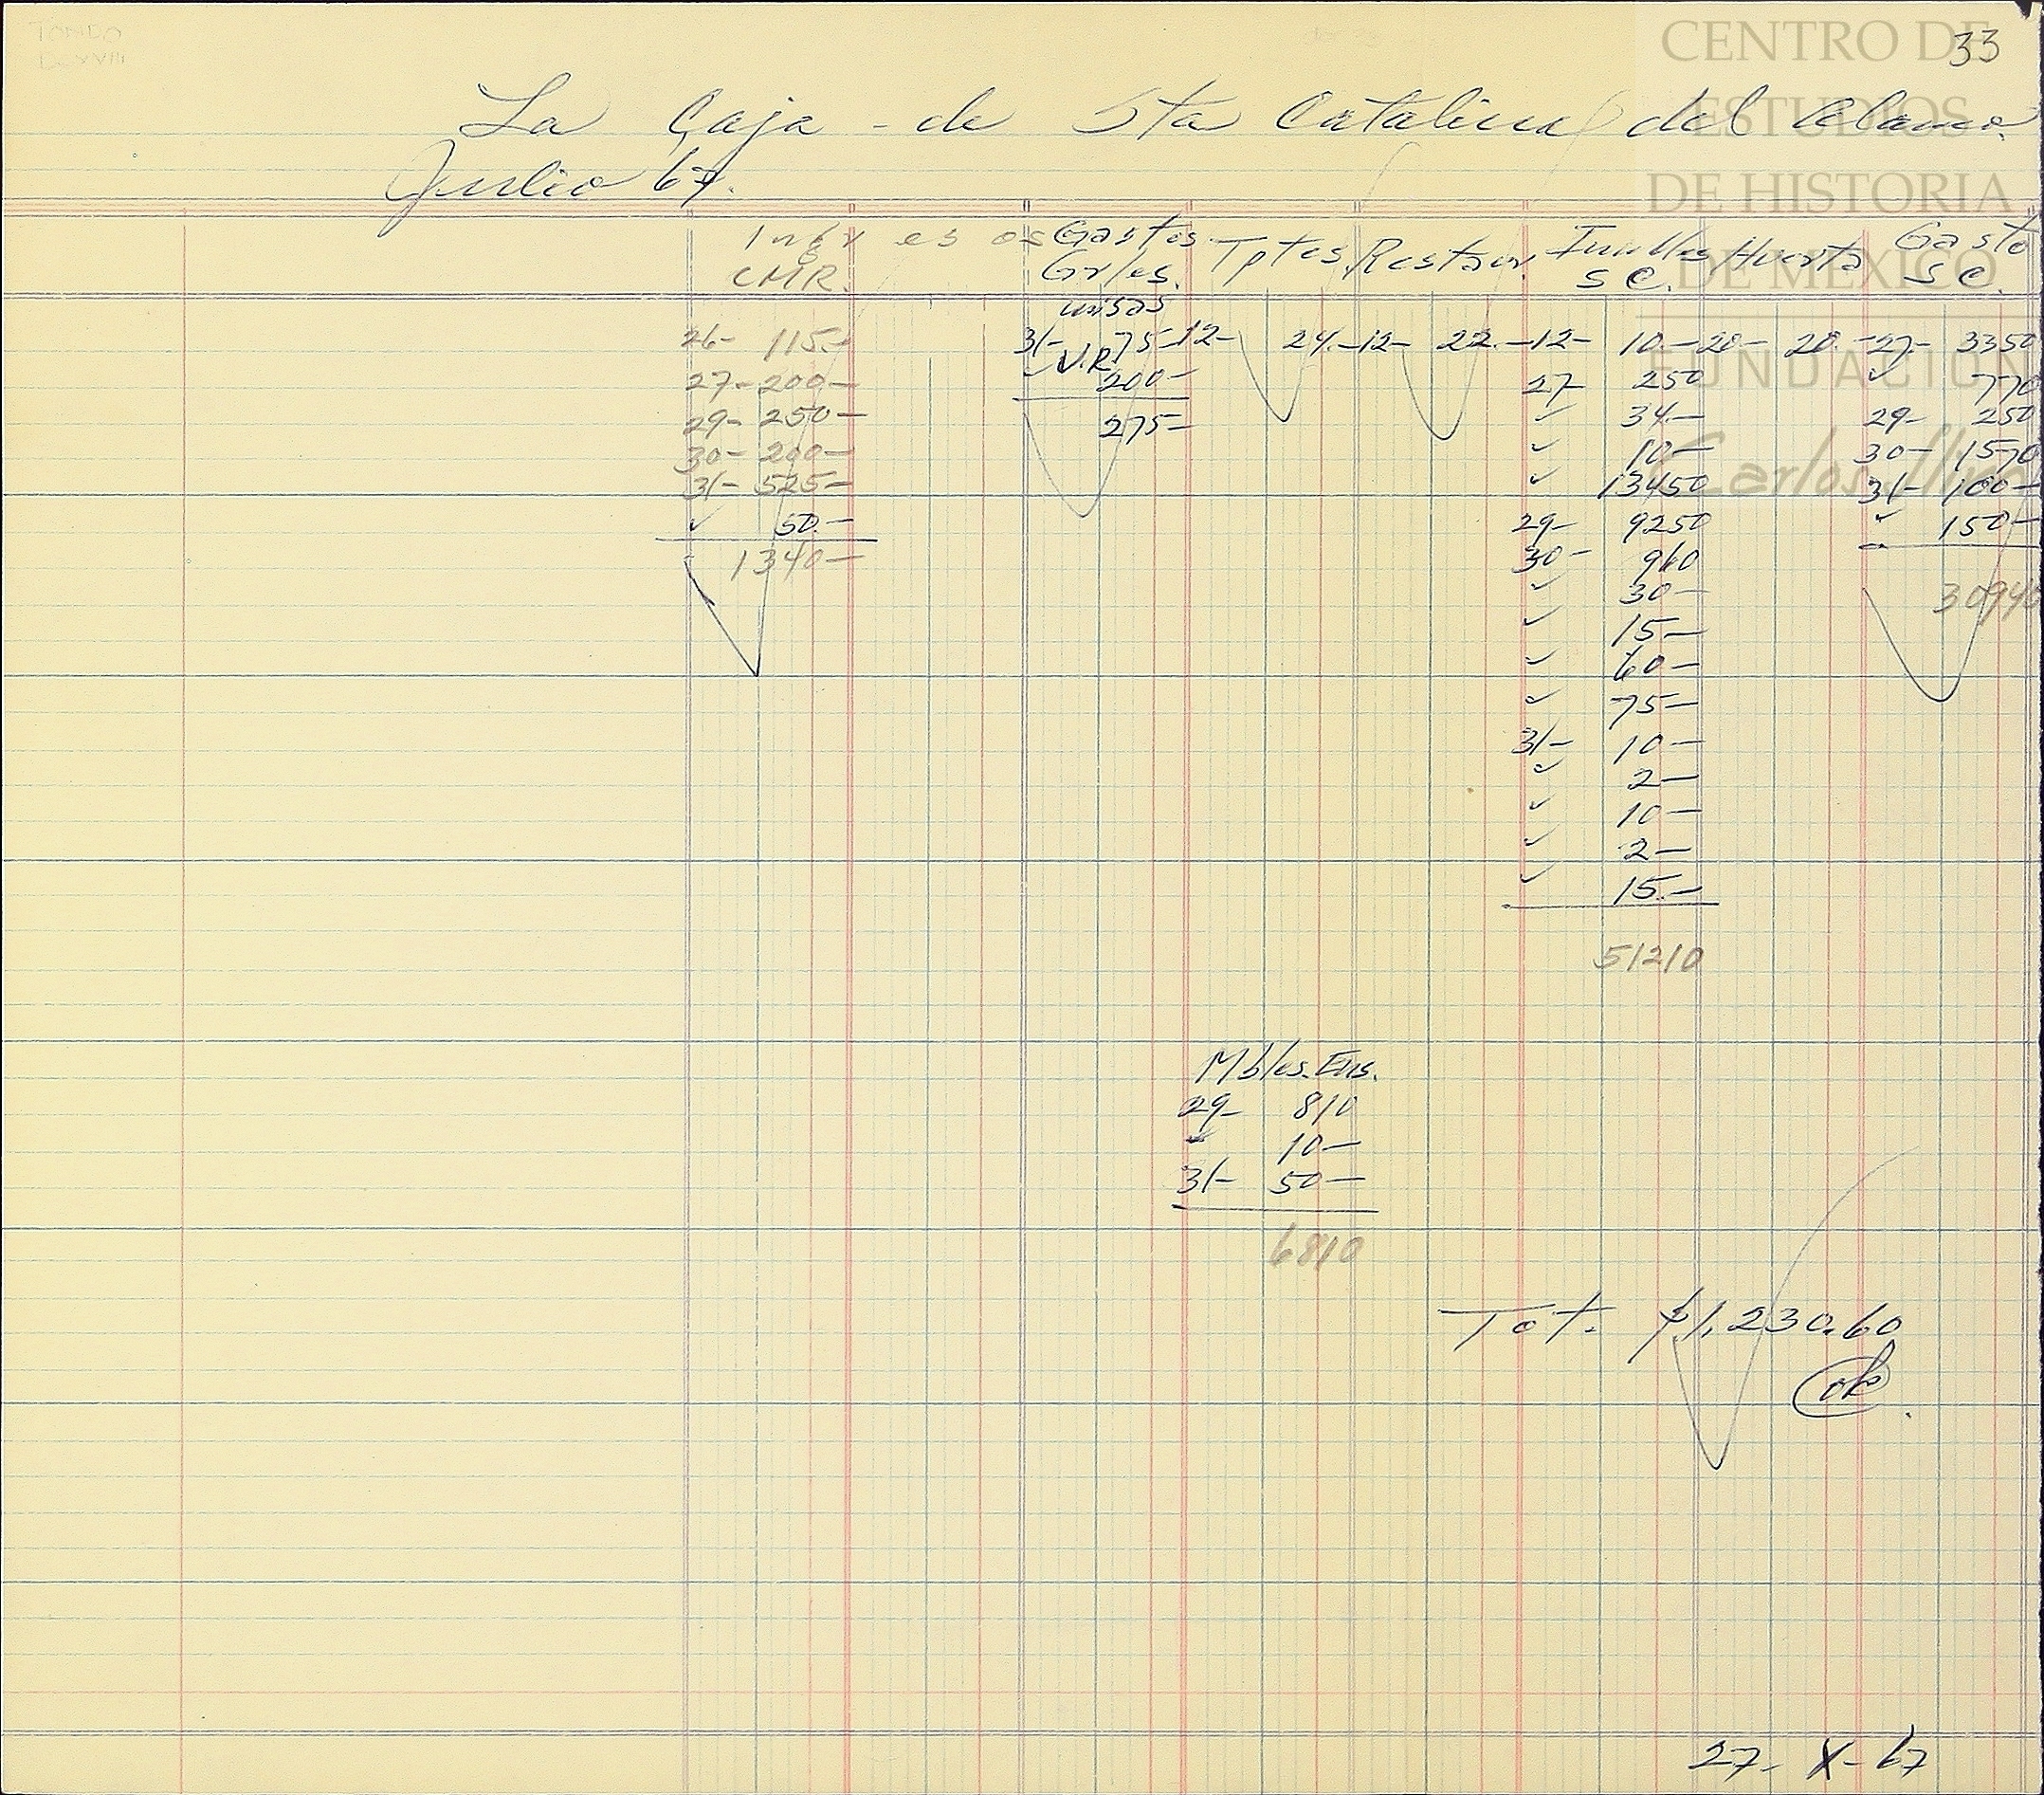 TONDO
DCXVIII
33
CENTRO DE
ESTUDIOS
DE HISTORIA
DE MEXICO
FUNDACION
Carlos Slim
La Caja - de Sta Catalina del Alamo.
Julio 67.
Ingresos CMR.
26- 115.-
27- 200.-
29- 250-
30- 200-
31- 525-
" 50.-
1340-
Gastos Grles.
misas
31- 75-
" V.R. 200-
275-
Tptes.
12- 24.-
Restaur.
12- 22.-
Inmbles S C.
12- 10.-
27- 250
" 34.-
" 10-
" 13450
29- 9250
30- 960
" 30-
" 15-
" 60-
" 75-
31- 10-
" 2-
" 10-
" 2-
" 15.-
51210
Huerta
20- 20.-
Gasto S C.
27- 3350
" 770
29- 250
30- 1570
31- 100-
" 150-
30940
Mbles. Ens.
29- 810
" 10-
31- 50-
6810
Tot. $1,230.60
ok.
27- X- 67